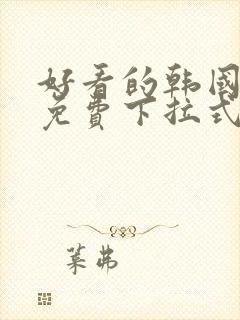 好看的韩国
免费下拉式
菜弗